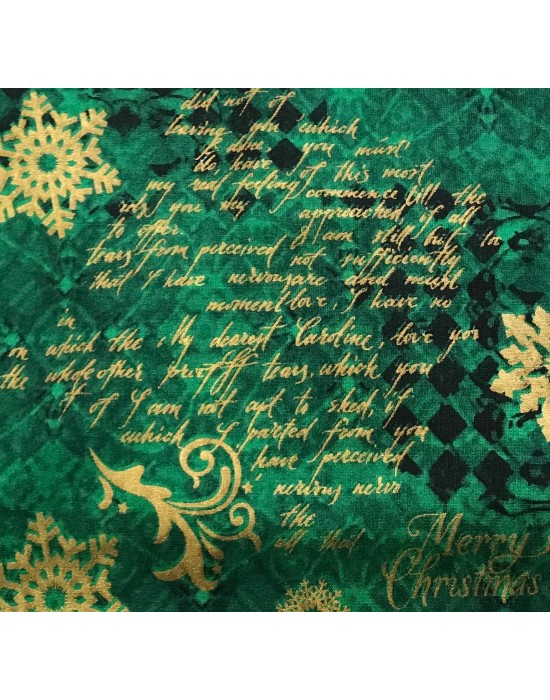 did not of
leaving you which
& done you must
Ile, have of this most
my real feeling commence till the
why you my approached, if all
to offer I am still but in
tears from perceived not sufficiently
that I have nervous are dead must
moment love, I have no
in
on which the My dearest Caroline, love you
the whole other proof of tears, which you
of I am not apt to shed, if
which I parted from you
have perceived
nervous nervo
the
all that
Merry
Christmas